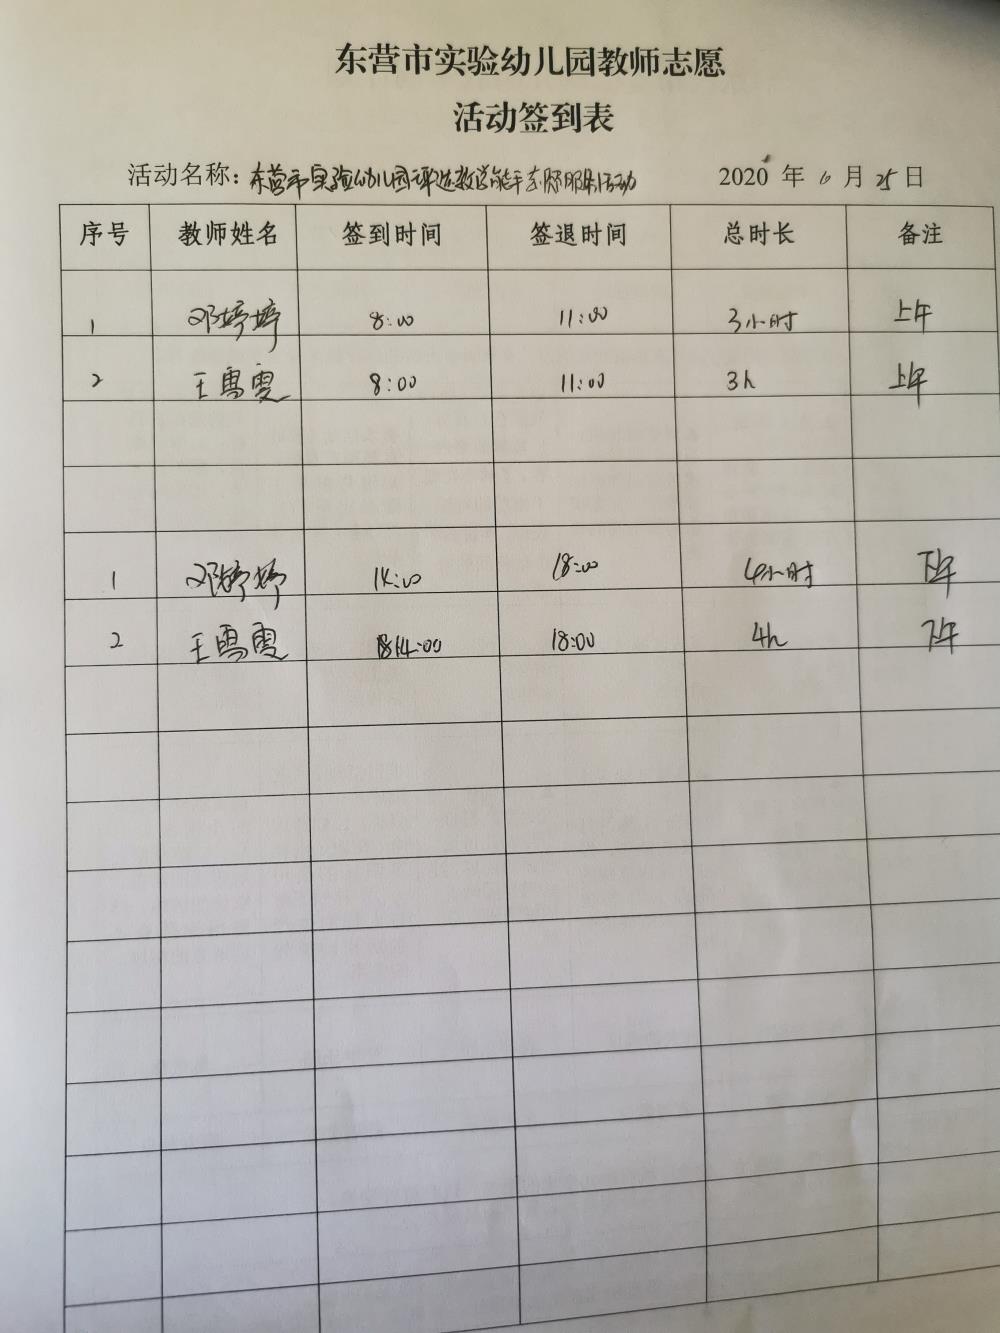 东营市实验幼儿园教师志愿
活动签到表
活动名称：东营市实验幼儿园评选教学能手志愿服务活动 2020 年 6 月 25 日
序号 教师姓名 签到时间 签退时间 总时长 备注
1 邓婷婷 8:00 11:00 3小时 上午
2 王雪雯 8:00 11:00 3h 上午
1 邓婷婷 14:00 18:00 4小时 下午
2 王雪雯 14:00 18:00 4h 下午